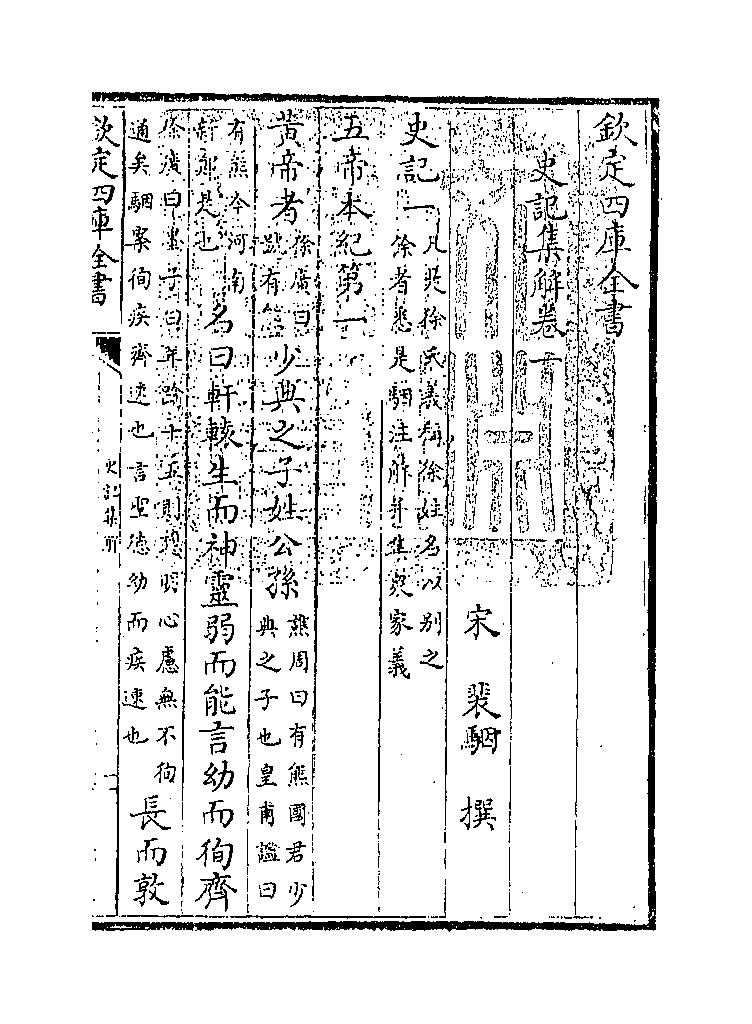 欽定四庫全書
史記集解卷一
宋 裴駰 撰
史記一凡是徐氏義稱徐姓名以别之
餘者悉是駰注解并集衆家義
五帝本紀第一
黄帝者徐廣曰號有熊少典之子姓公孫譙周曰有熊國君少典之子也皇甫謐曰
有熊今河南新鄭是也名曰軒轅生而神靈弱而能言幼而徇齊
徐廣曰墨子曰年踰十五則聰明心慮無不徇通矣駰案徇疾齊速也言聖德幼而疾速也長而敦
欽定四庫全書
史記集解
一